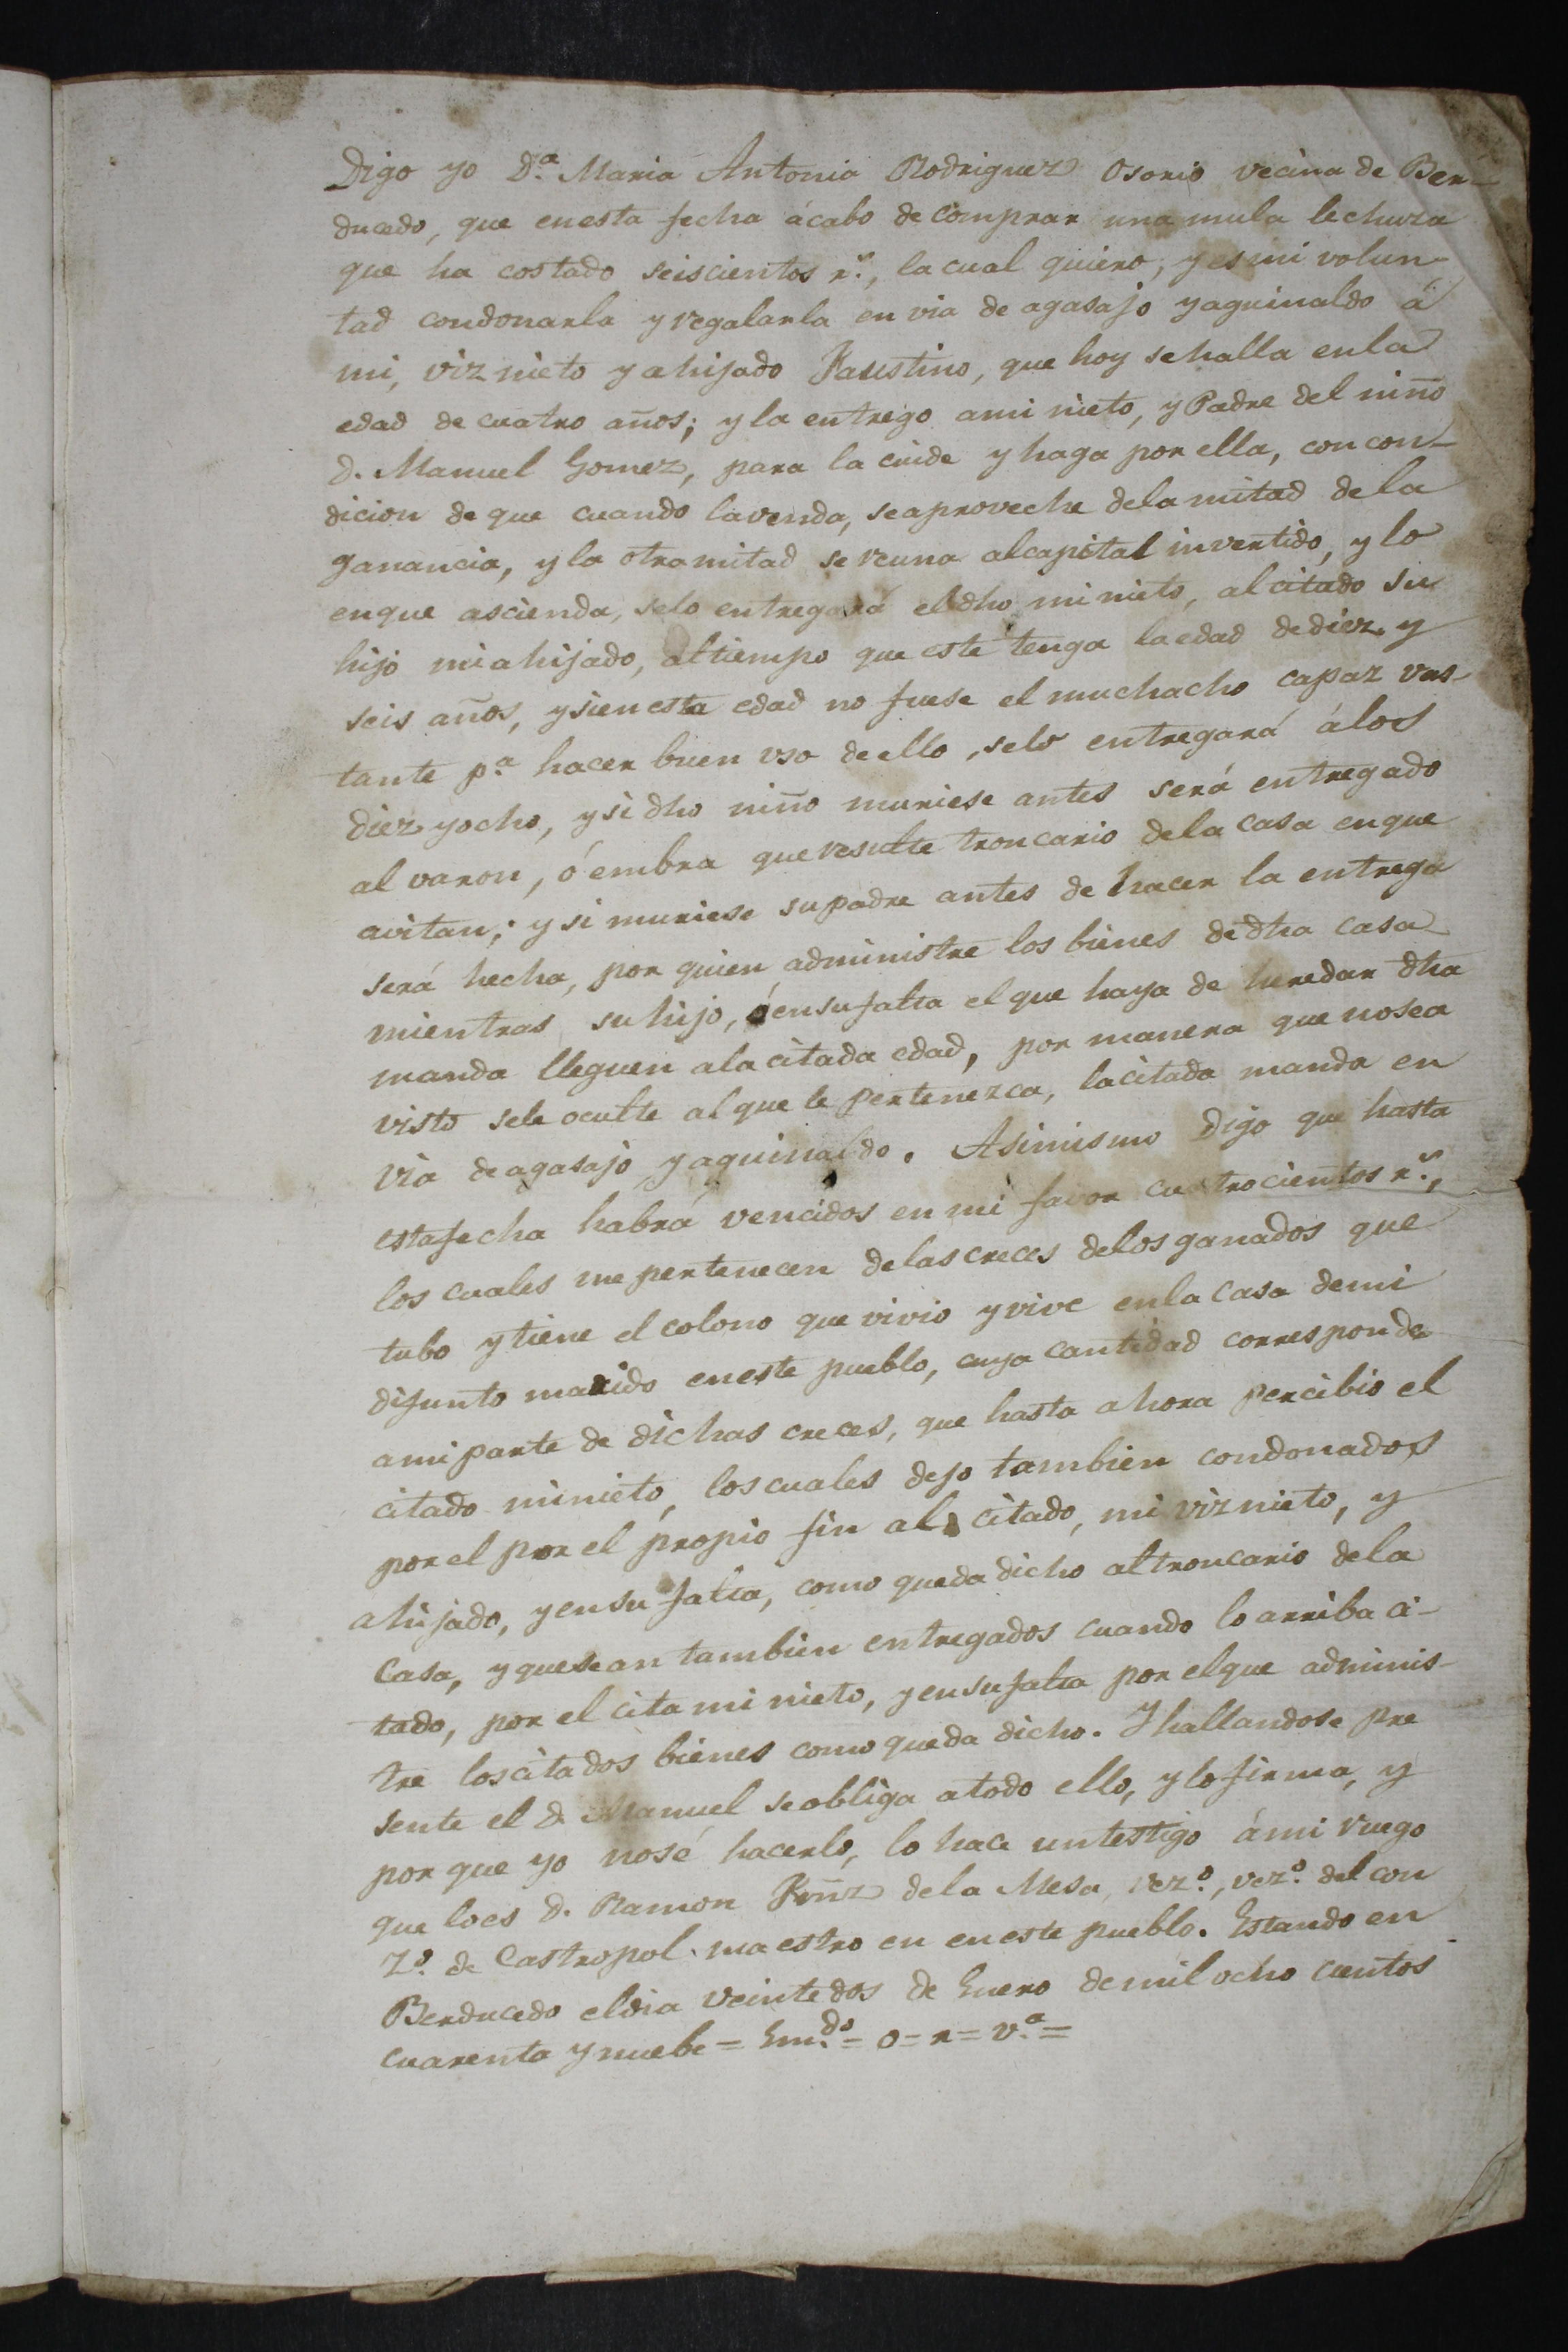 Digo yo D.ª Maria Antonia Rodriguez Osorio vecina de Ber-
ducedo, que enesta fecha ácabo de comprar una mula lechuza
que ha costado seiscientos r.s, la cual quiero, y esmi volun-
tad condonarla y regalarla en via de agasajo yaguinaldo á
mi, viznieto y ahijado Faustino, que hoy sehalla enla
edad de cuatro años; y la entrego ami nieto, y Padre del niño
d. Manuel Gomez, para la cuide y haga por ella, con con-
dicion de que cuando lavenda, seaproveche dela mitad dela
ganancia, y la otramitad se reuna alcapital invertido, y lo
enque ascienda, selo entregará eldho minieto, alcitado su
hijo miahijado, altiempo que este tenga laedad dediez y
seis años, ysienesta edad no fuese el muchacho capaz vas-
tante p.ª hacer buen uso deello, selo entregará álos
diez yocho, ysi dho niño muriese antes será entregado
al varon, ó embra queresulte troncario dela casa enque
avitan; y si muriese supadre antes de hacer la entrega
será hecha, por quien administre los bienes dedha casa
mientras suhijo, óensufalta el que haya de heredar dha
manda lleguen ala citada edad, por manera que nosea
visto sele oculte alque le pertenezca, lacitada manda en
via deagasajo yaguinaldo. Asimismo digo que hasta
estafecha habrá vencidos en mi favor cuatrocientos r.s,
los cuales mepertenecen delascreces delosganados que
tubo ytiene el colono que vivio yvive enla casa demi
difunto marido eneste pueblo, cuya cantidad corresponde
amiparte de dichas creces, que hasta ahora percibio el
citado minieto, loscuales dejo tambien condonados
porel por el propio fin al citado, mi viznieto, y
ahijado, yensufalta, como quedadicho altroncario dela
Casa, yquesean tambien entregados cuando lo arriba ci-
tado, por el cita mi nieto, yensufalta por elque adminis-
tre loscitados bienes como queda dicho. Yhallandose pre
sente el d. Manuel seobliga atodo ello, ylofirma, y
por que yo nosé hacerlo, lo hace untestigo ámi ruego
que loes d. Ramon Frnz dela Mesa, vez.º, vez.º del con
z.º de Castropol. maestro en eneste pueblo. Estando en
Berducedo eldia veintedos de Enero demil ocho cientos
cuarenta ynuebe = Em.do = o = r = v.ª =